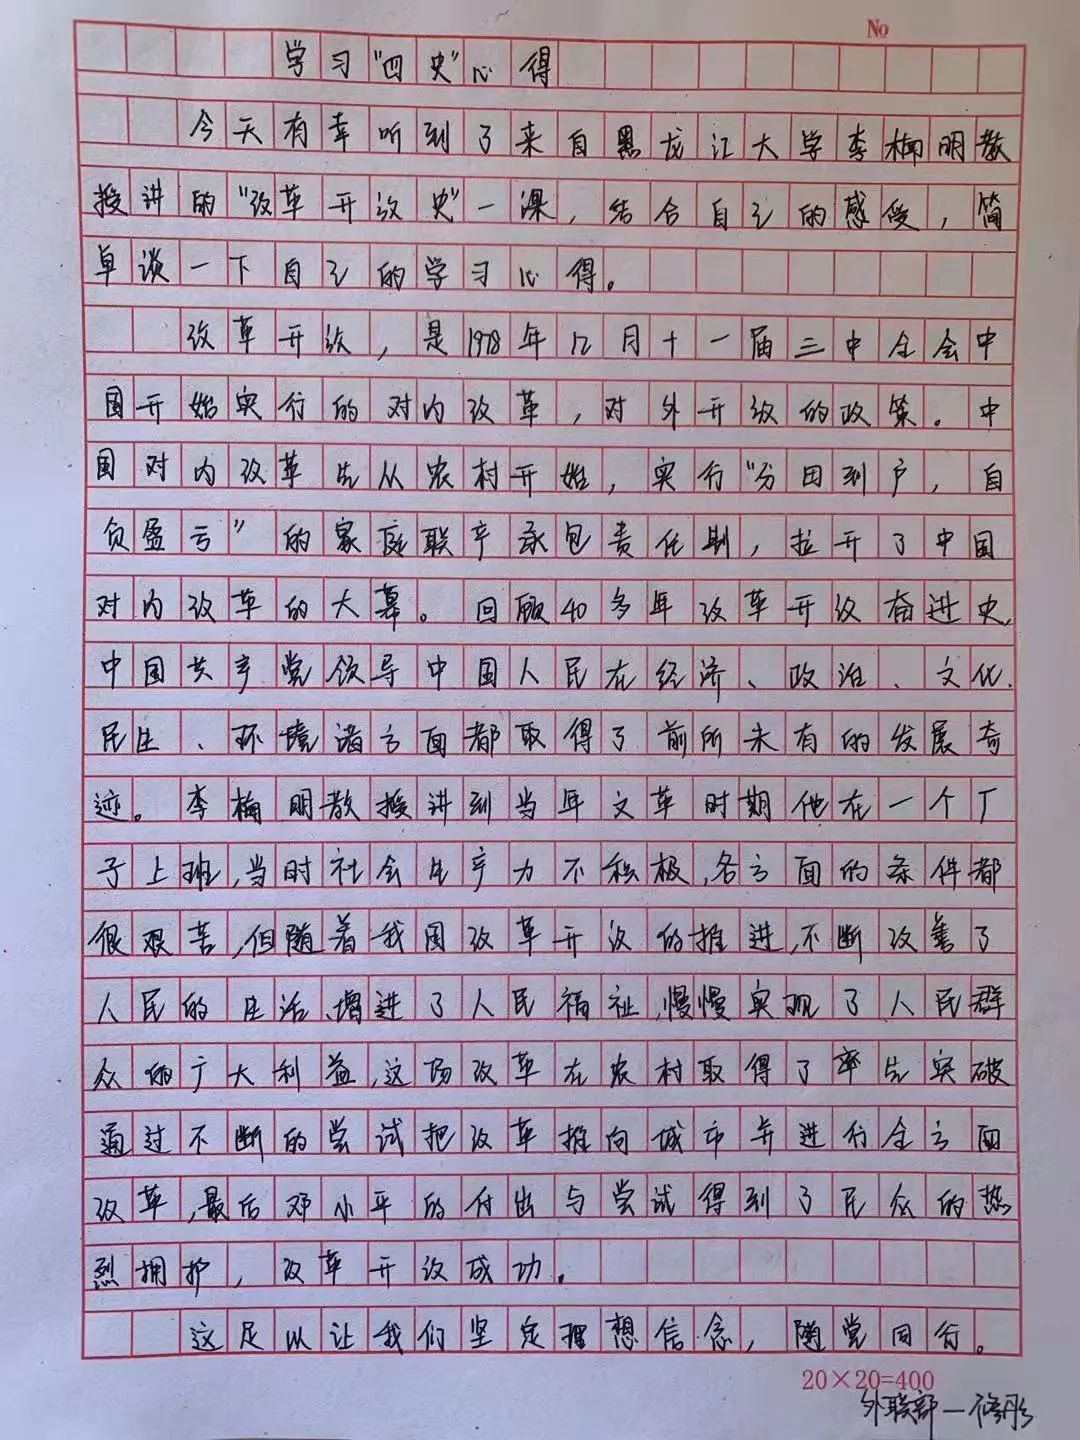 No
学习“四史”心得
今天有幸听到了来自黑龙江大学李梅明教
授讲的“改革开放史”一课，结合自己的感受，简
单谈一下自己的学习心得。
改革开放，是1978年12月十一届三中全会中
国开始实行的对内改革，对外开放的政策。中
国对内改革先从农村开始，实行“分田到户，自
负盈亏”的家庭联产承包责任制，拉开了中国
对内改革的大幕。回顾40多年改革开放奋进史，
中国共产党领导中国人民在经济、政治、文化、
民生、环境诸方面都取得了前所未有的发展奇
迹。李梅明教授讲到当年文革时期他在一个厂
子上班，当时社会生产力不积极，各方面的条件都
很艰苦，但随着我国改革开放的推进，不断改善了
人民的生活，增进了人民福祉，慢慢实现了人民群
众的广大利益，这场改革在农村取得了率先突破
通过不断的尝试把改革推向城市并进行全方面
改革，最后邓小平的付出与尝试得到了民众的热
烈拥护，改革开放成功。
这足以让我们坚定理想信念，随党同行。
20×20=400
外联部—修彤